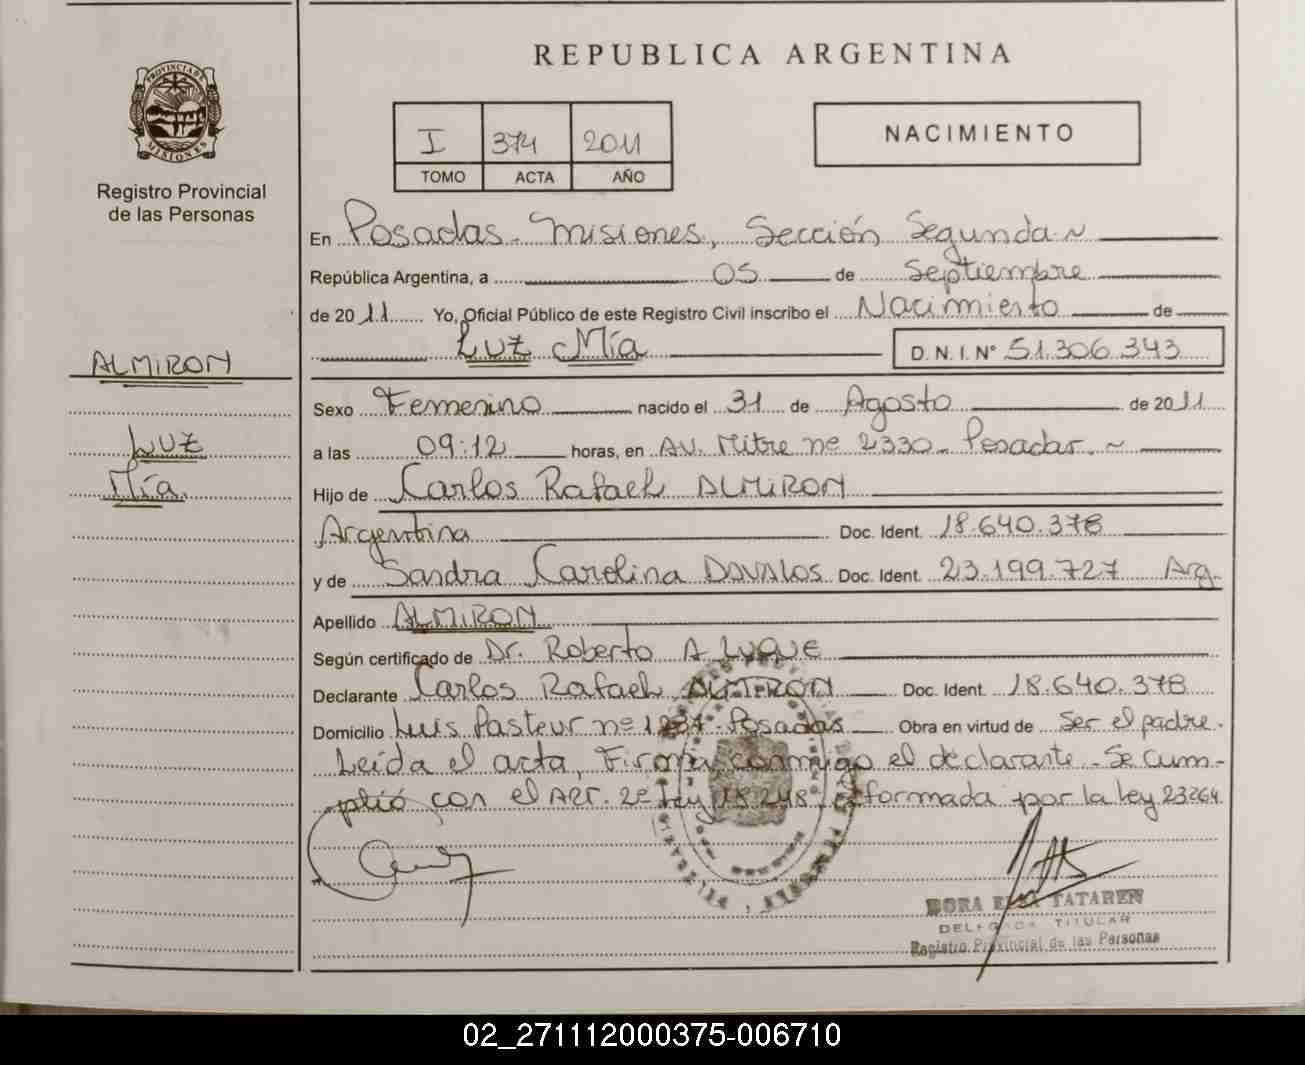 REPUBLICA ARGENTINA
PROVINCIA DE MISIONES
Registro Provincial
de las Personas
I 374 2011
TOMO ACTA AÑO
NACIMIENTO
En Posadas - Misiones, Sección Segunda
República Argentina, a 05 de Septiembre
de 2011 Yo, Oficial Público de este Registro Civil inscribo el Nacimiento de
Luz Mía D.N.I. N° 51.306.343
ALMIRON
Luz
Mía
Sexo Femenino nacido el 31 de Agosto de 2011
a las 09:12 horas, en Av. Mitre nº 2330 - Posadas.
Hijo de Carlos Rafael ALMIRON
Argentina Doc. Ident. 18.640.378
y de Sandra Carolina DAVALOS Doc. Ident. 23.199.727 Arg.
Apellido ALMIRON
Según certificado de Dr. Roberto A LUQUE
Declarante Carlos Rafael ALMIRON Doc. Ident. 18.640.378
Domicilio Luis Pasteur nº Posadas Obra en virtud de Ser el padre.
Leída el acta, Firma conmigo el declarante - Se cum-
plió con el Art. 2º Ley 18.248 reformada por la ley 23264
TATAREN
DELEGADA TITULAR
Registro Provincial de las Personas
02_271112000375-006710